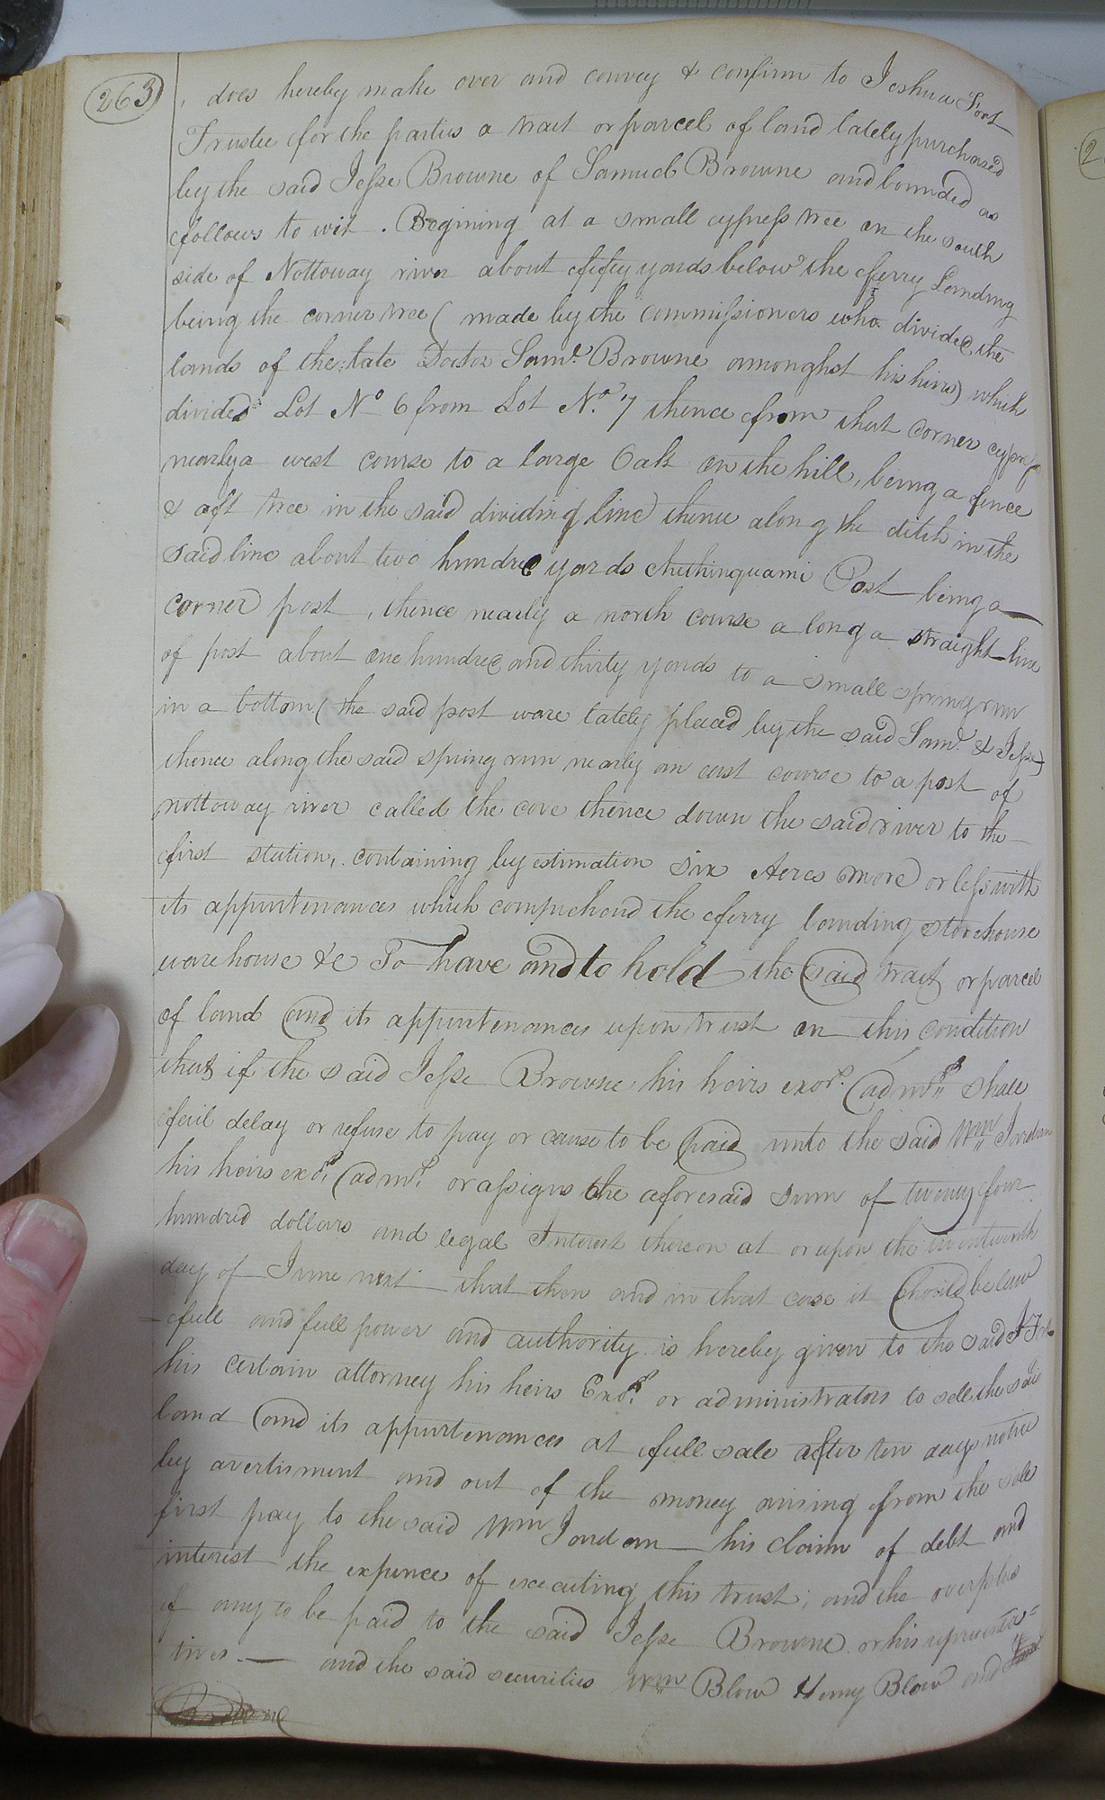 263
does hereby make over and convey & confirm to Joshua Fort
Trustee for the parties a tract or parcel of land lately purchased
by the said Jesse Browne of Samuel Browne and bounded as
follows to wit. Begining at a small cypress tree on the south
side of Nottoway river about fifty yards below the ferry Landing
being the corner tree (made by the Commissioners who divided the
lands of the late Doctor Saml. Browne amonghst his hiers) which
divides Lot No 6 from Lot No. 7 thence from that corner cypress
nearly a west course to a large Oak on the hill, being a fence
& aft tree in the said dividing line thence along the ditch in the
said line about two hundred yards to Post being a
corner post, thence nearly a north course a long a straight line
of post about one hundred and thirty yards to a small spring run
in a bottom (the said post ware lately placed by the said Saml. & Jesse)
thence along the said spring run nearly an east course to a post of
nottoway river called the cove thence down the said river to the
first station, containing by estimation six Acres more or less with
its appurtenances which comprehend the ferry landing storehouse
warehouse &c To have and to hold the said tract or parcel
of land and its appurtenances upon trust on this condition
that if the said Jesse Browne his heirs exors. admrs shall
fail delay or refuse to pay or cause to be paid unto the said Wm Jordan
his heirs exrs. admrs. or assigns the aforesaid sum of twenty four
hundred dollars and legal Interest thereon at or upon the
day of June next that then and in that case it should be law
full and full power and authority is hereby given to the said J Fort
his certain attorney his heirs Exors. or administrators to sell the said
land and its appurtenances at full sale after ten days notice
by avertisment and out of the money arising from the sale
first pay to the said Wm Jordan his claim of debt and
interest the expence of executing this trust; and the overplus
if any to be paid to the said Jesse Browne or his representa=
tives. — and the said securities Wm Blow Henry Blow and
Browne